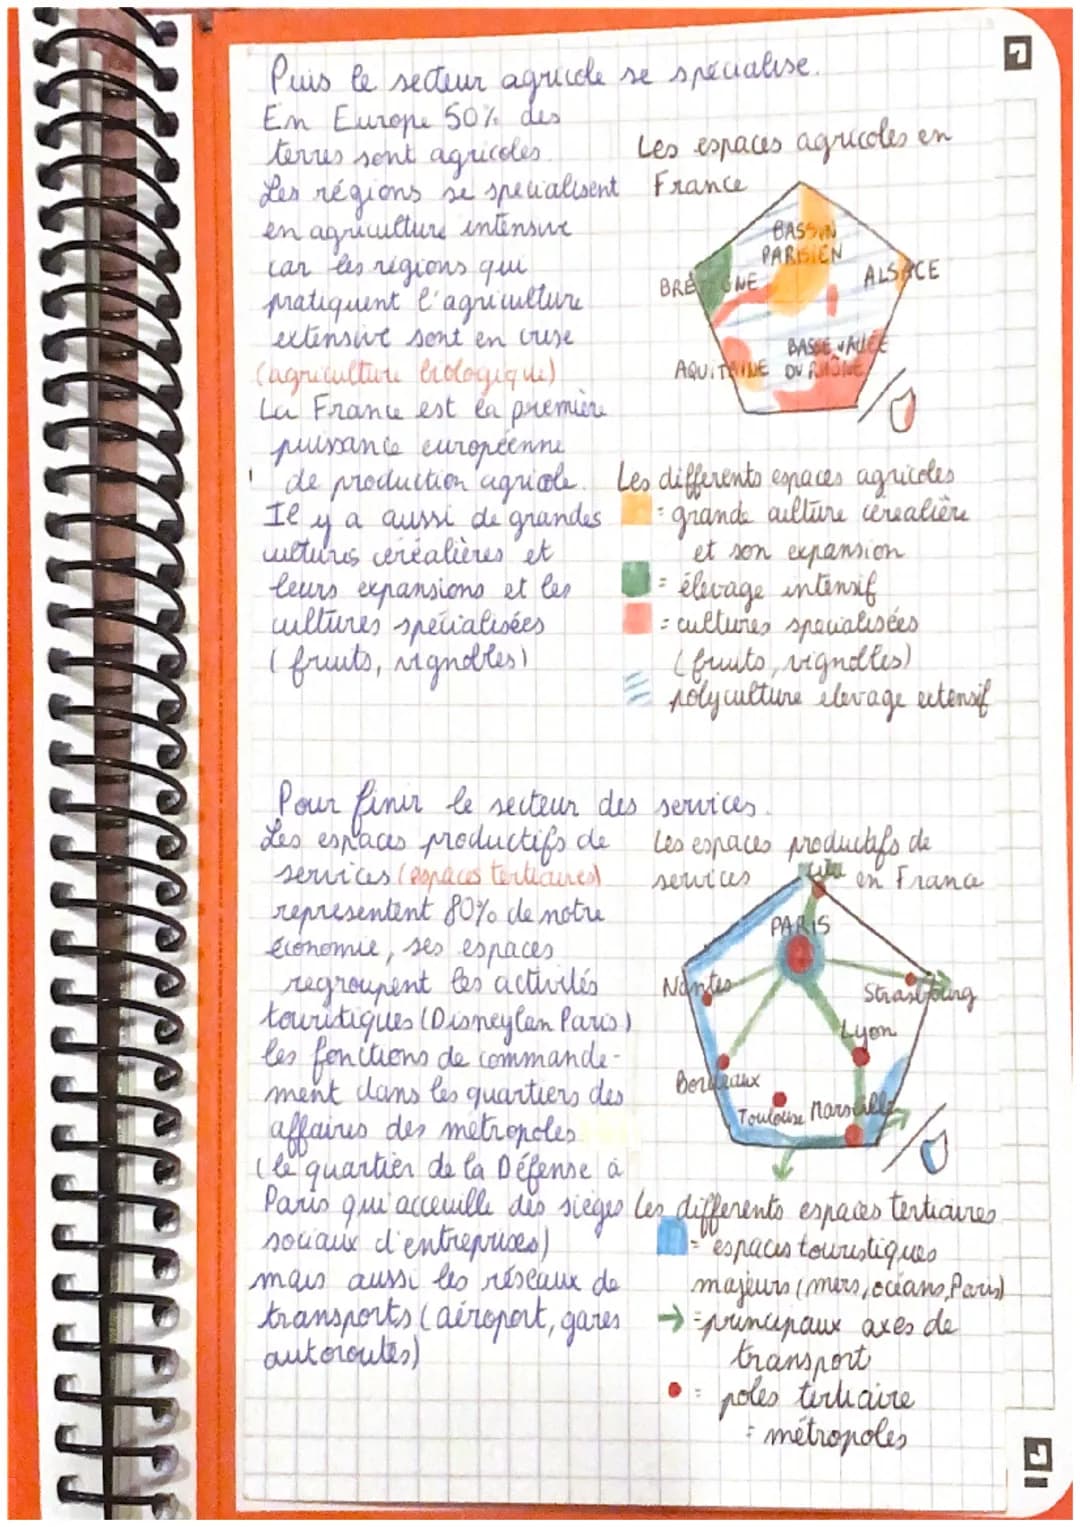 Puis le secteur agricole se spécialise.
En Europe 50% des
terres sont agricoles.
Les régions se spécialisent
en agriculture intensive
car les régions qui
pratiquent l'agriculture
extensive sont en crise
(agriculture biologique)
La France est la première
puissance européenne
de production agricole.
Il y a aussi de grandes
cultures céréalières et
leurs expansions et les
cultures spécialisées
(fruits, vignobles)
Les espaces agricoles en
France
BASSIN
PARISIEN
BRETAGNE
ALSACE
BASSE VALLEE
DU RHÔNE
AQUITAINE
Les differents espaces agricoles
= grande culture cerealière
et son expansion
= élevage intensif
= cultures specialisées
(fruits, vignobles)
polyculture elevage extensif
Pour finir le secteur des services.
Les espaces productifs de
services (espaces tertiaires)
représentent 80% de notre
économie, ses espaces
regroupent les activités
touristiques (Disneylan Paris)
les fonctions de commande-
ment dans les quartiers des
affaires des métropoles
(le quartier de la Défense à
Paris qui acceuille des sièges
sociaux d'entreprises)
mais aussi les réseaux de
transports (aéroport, gares
autoroutes)
Les espaces productifs de
services en France
PARIS
Nantes
Strasbourg
Lyon
Bordeaux
Toulouse
Marseille
Les differents espaces tertiaires
= espaces touristiques
majeurs (mers, océans, Paris)
→ = principaux axes de
transport
= poles tertiaire
= métropoles